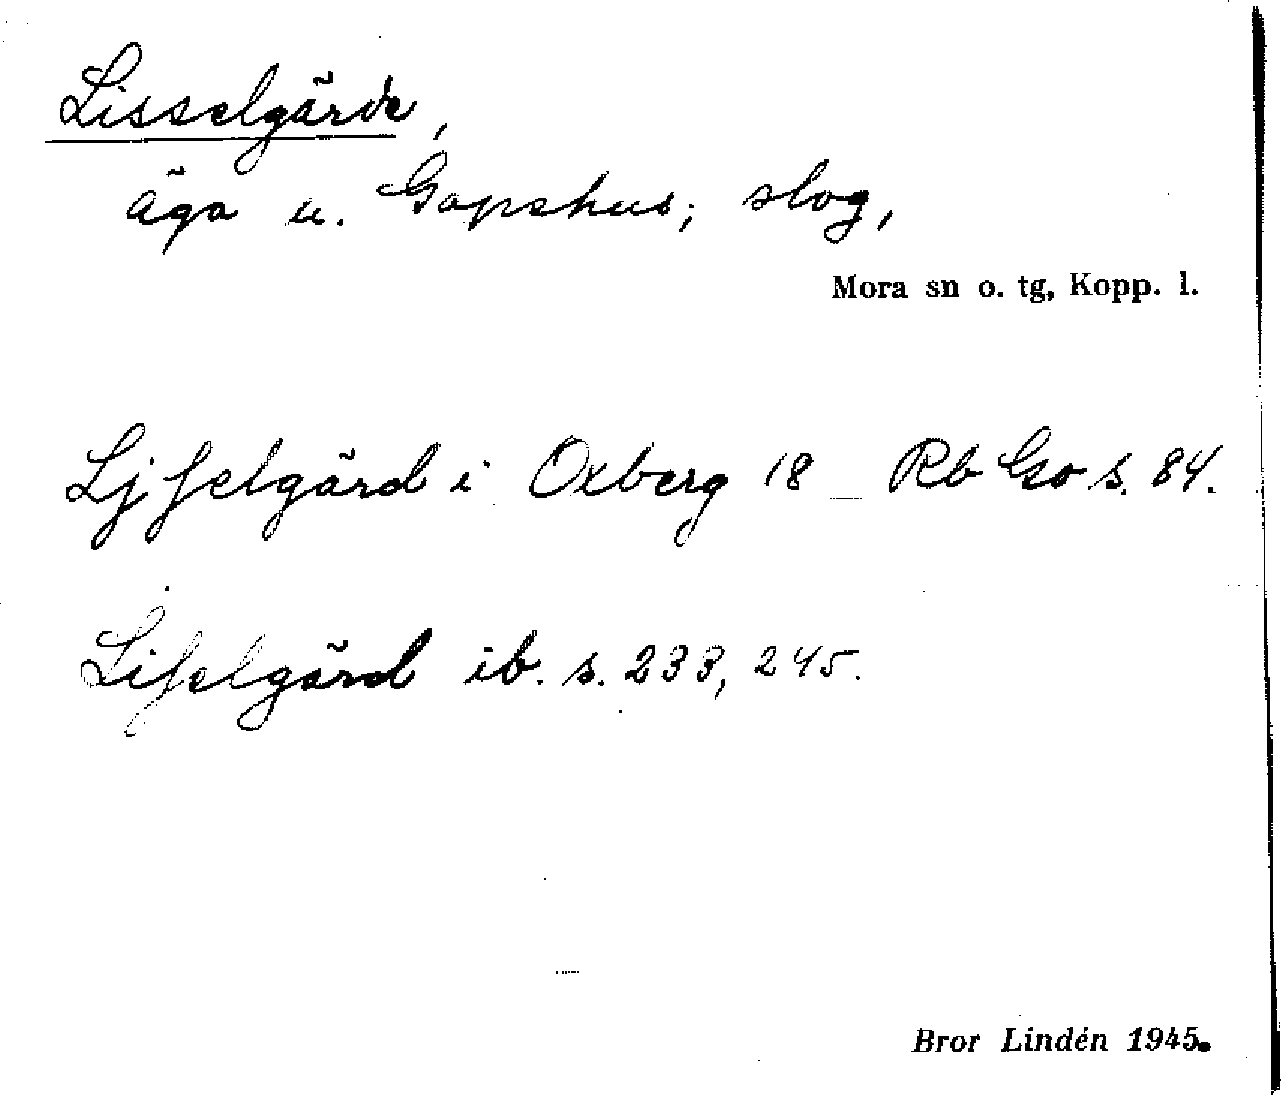 Lisselgärde,
äga u. Gopshus; slog,
Mora sn o. tg, Kopp. l.
Ljſselgärd i Oxberg 18 _ Rb Go s. 84.
Liſselgärd ib. s. 233, 245.
Bror Lindén 1945.